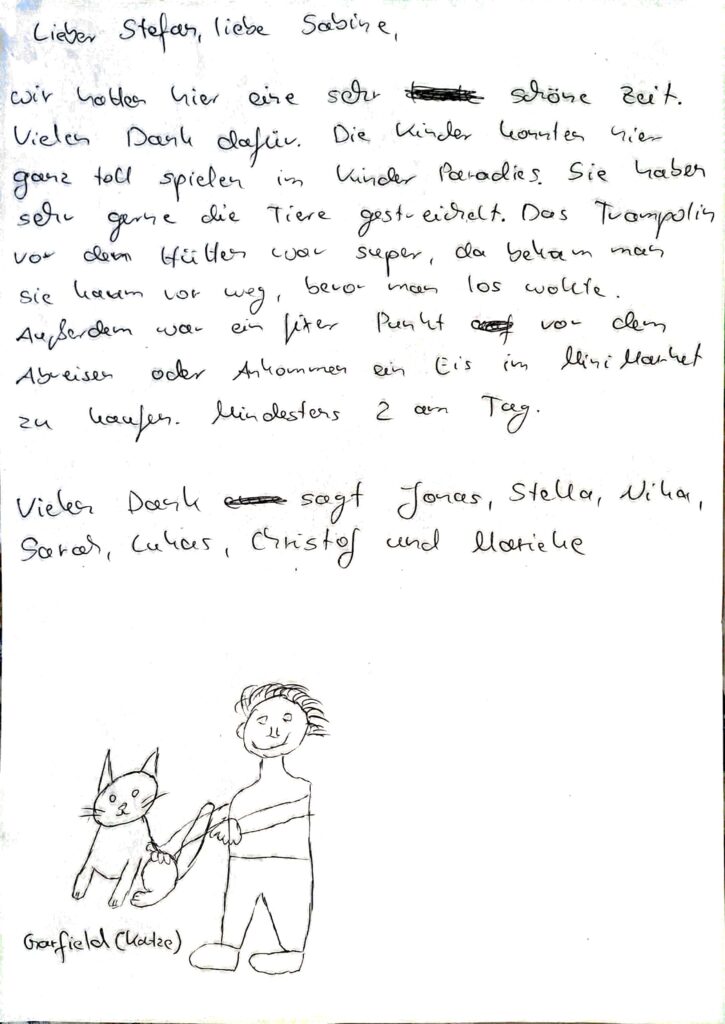 Lieber Stefan, liebe Sabine,
wir hatten hier eine sehr schöne Zeit.
Vielen Dank dafür. Die Kinder konnten hier
ganz toll spielen im Kinder Paradies. Sie haben
sehr gerne die Tiere gestreichelt. Das Trampolin
vor dem Hütten war super, da bekam man
sie kaum vor weg, bevor man los wollte.
Außerdem war ein fixer Punkt vor dem
Abreisen oder Ankommen ein Eis im Mini Market
zu kaufen. Mindestens 2 am Tag.
Vielen Dank sagt Jonas, Stella, Nika,
Sarah, Lukas, Christof und Marieke
Garfield (Katze)